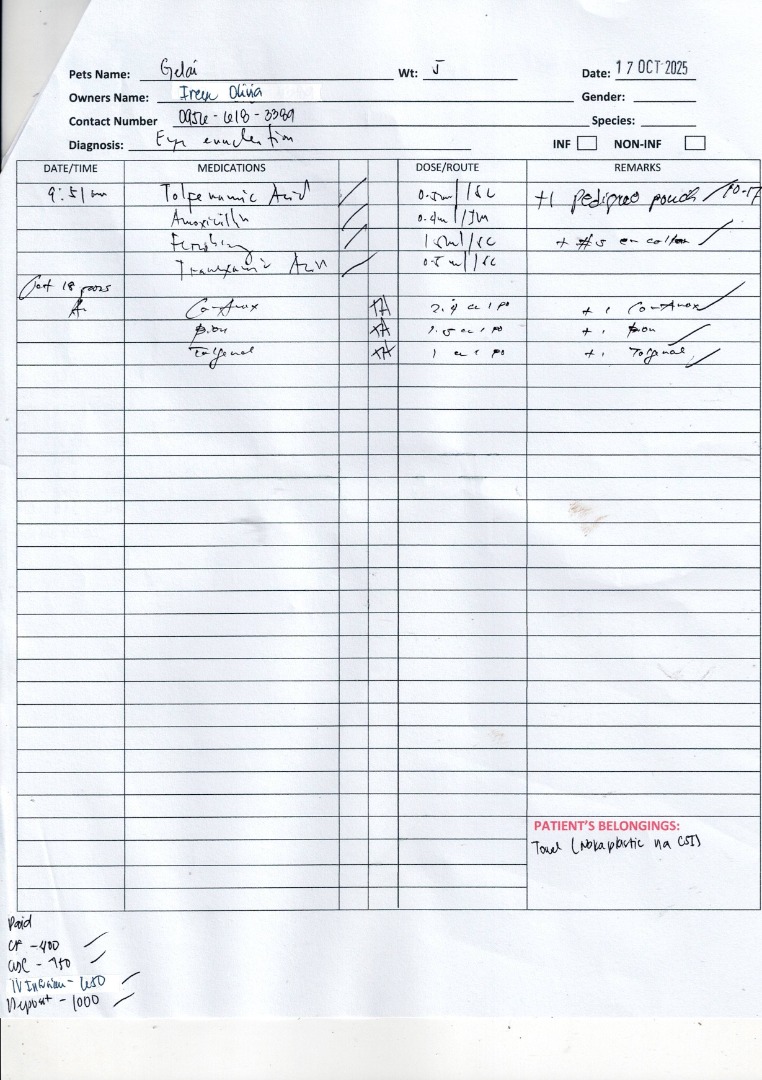 Pets Name: Gelai Wt: 5 Date: 17 OCT 2025
Owners Name: Irene Olivia Gender:
Contact Number 0956-618-3389 Species:
Diagnosis: Eye enucleation INF NON-INF
DATE/TIME MEDICATIONS DOSE/ROUTE REMARKS
9:51 Tolfenamic Acid 0.5ml/SC +1 Pedigree pouch 10-17
Amoxicillin 0.4ml/IM
1.5ml/SC + #5 e collar
Tranexamic Acid 0.5ml/SC
Oct 18
Co-Amox PO + 1 Co-Amox
PO + 1
Tolfenal 1 PO + 1 Tolfenal
PATIENT'S BELONGINGS:
Towel (Nakaplastic na CSI)
Paid
CF - 400
CBC - 750
IV Infusion - 650
Deposit - 1000